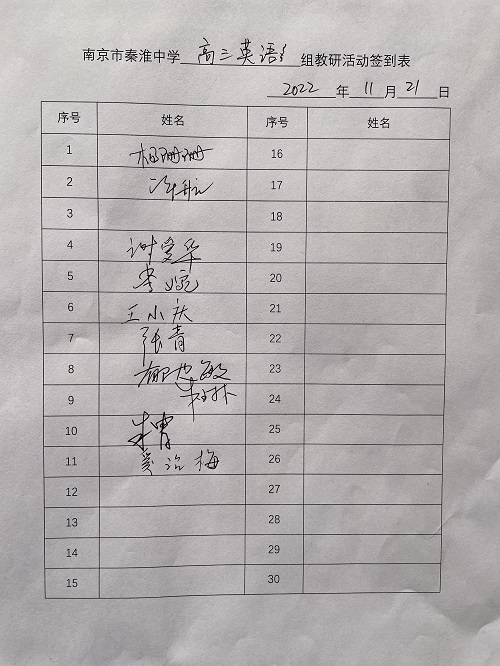 南京市秦淮中学 高三英语 组教研活动签到表
2022 年 11 月 21 日
序号 姓名 序号 姓名
1 相珊珊 16
2 17
3 18
4 谢爱华 19
5 李婉 20
6 王小庆 21
7 张青 22
8 郁忠敏 23
9 朱林 24
10 朱胄 25
11 奚治梅 26
12 27
13 28
14 29
15 30